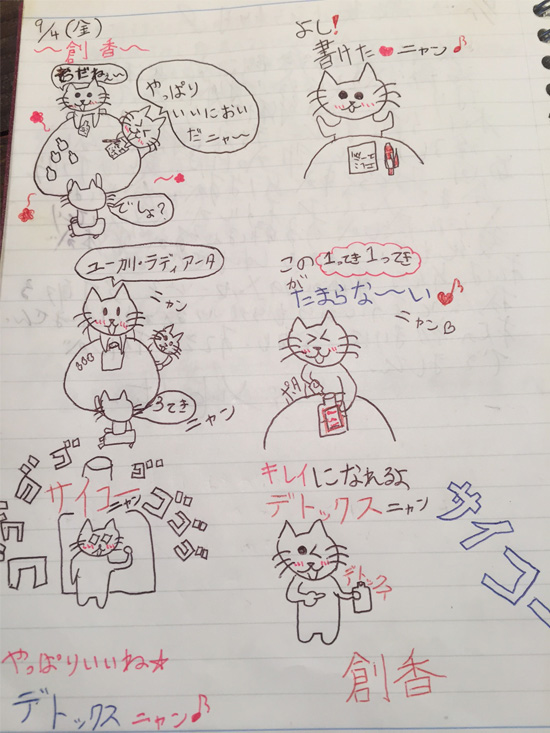 9/4(金)
~創香~
やっぱり
いいにおい
だニャ~
でしょ?
よし!
書けた♥ニャン♪
ユーカリ・ラディアータ
ニャン
3てき
ニャン
この1てき1てき
が
たまらな~い♥♪
ニャン♪
ポタ
サイコーニャン
キレイになれるよ
デトックスニャン
デトックス
サイコー
やっぱりいいね☆
デトックスニャン♪
創香